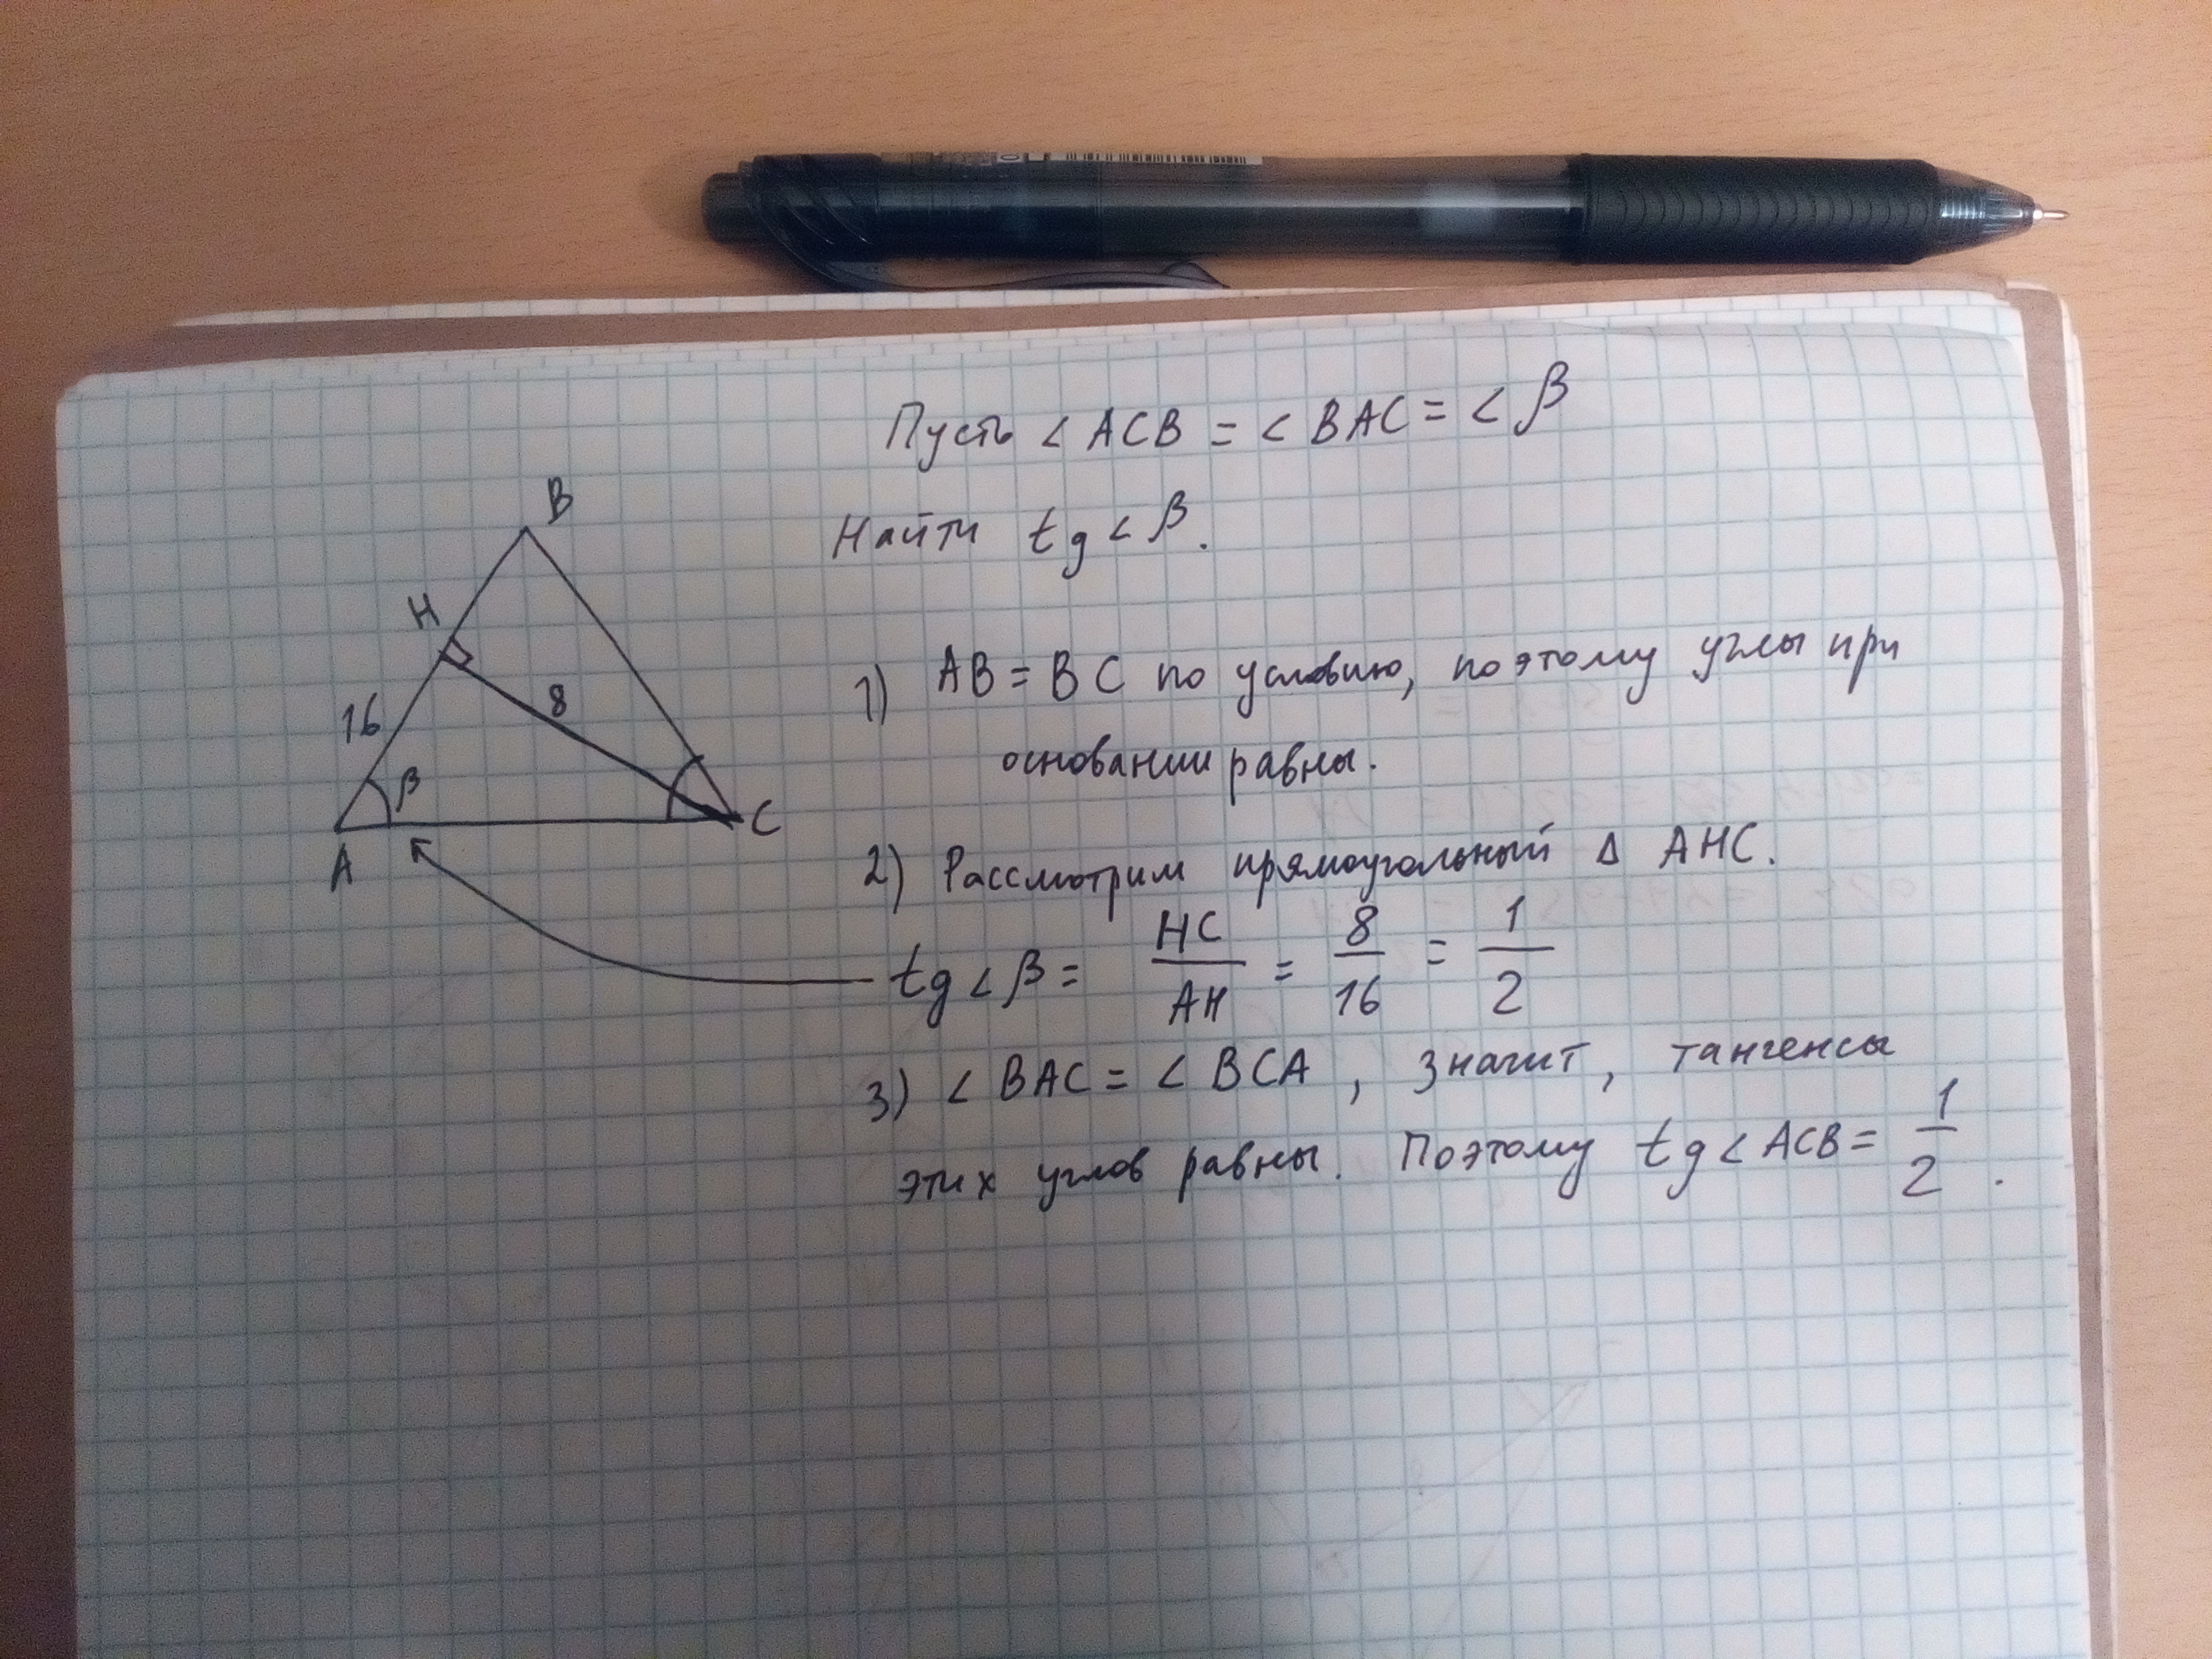 Пусть ∠ ACB = ∠ BAC = ∠ β
Найти tg ∠ β.
B
H
16
8
β
A
C
1) AB = BC по условию, поэтому углы при
основании равны.
2) Рассмотрим прямоугольный Δ AHC.
tg ∠ β = HC/AH = 8/16 = 1/2
3) ∠ BAC = ∠ BCA, значит, тангенсы
этих углов равны. Поэтому tg ∠ ACB = 1/2.